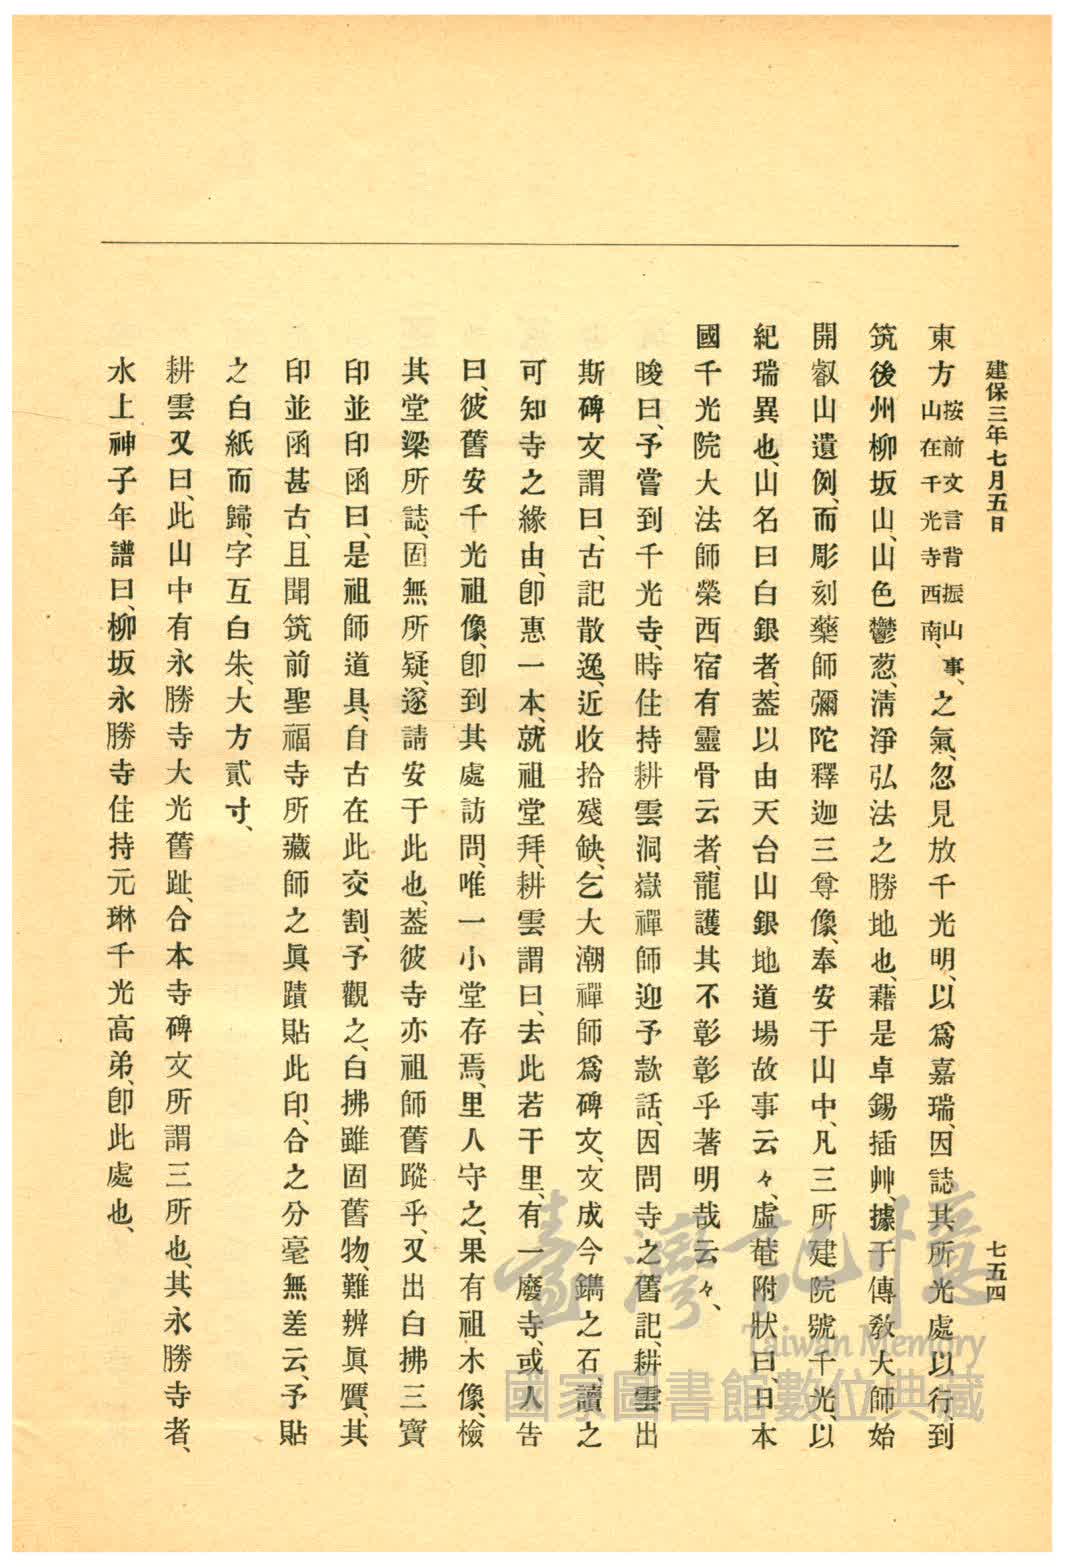 建保三年七月五日
七五四
東方按前文言背振山事、山在千光寺西南、之氣、忽見放千光明、以爲嘉瑞、因誌其所光處以行到
筑後州柳坂山、山色鬱葱、淸淨弘法之勝地也、藉是卓錫插艸、據于傳敎大師始
開叡山遺例、而彫刻藥師彌陀釋迦三尊像、奉安于山中、凡三所建院號千光、以
紀瑞異也、山名曰白銀者、蓋以由天台山銀地道場故事云々、虛菴附狀曰、日本
國千光院大法師榮西宿有靈骨云者、龍護其不彰彰乎著明哉云々、
晙曰、予嘗到千光寺、時住持耕雲洞嶽禪師迎予款話、因問寺之舊記、耕雲出
斯碑文謂曰、古記散逸、近收拾殘缺、乞大潮禪師爲碑文、文成今鐫之石、讀之
可知寺之緣由、卽惠一本、就祖堂拜、耕雲謂曰、去此若干里、有一廢寺、或人吿
曰、彼舊安千光祖像、卽到其處訪問、唯一小堂存焉、里人守之、果有祖木像、檢
其堂梁所誌、固無所疑、逐請安于此也、蓋彼寺亦祖師舊蹤乎、又出白拂三寶
印並印函曰、是祖師道具、自古在此交割、予觀之、白拂雖固舊物、難辨眞贋、其
印並函甚古、且聞筑前聖福寺所藏師之眞蹟貼此印、合之分毫無差云、予貼
之白紙而歸、字互白朱、大方貳寸、
耕雲又曰、此山中有永勝寺大光舊趾、合本寺碑文所謂三所也、其永勝寺者、
水上神子年譜曰、柳坂永勝寺住持元琳千光高弟、卽此處也、
臺灣記憶
Taiwan Memory
國家圖書館數位典藏